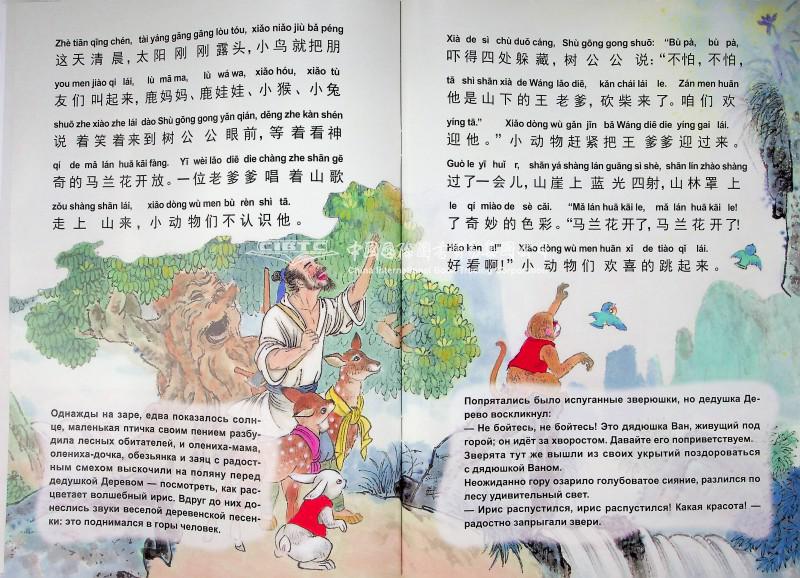 Zhè tiān qīng chén, tài yáng gāng gāng lòu tóu, xiǎo niǎo jiù bǎ péng
这天清晨，太阳刚刚露头，小鸟就把朋
you men jiào qǐ lái, lù mā ma, lù wá wa, xiǎo hóu, xiǎo tù
友们叫起来，鹿妈妈、鹿娃娃、小猴、小兔
shuō zhe xiào zhe lái dào Shù gōng gong yǎn qián, děng zhe kàn shén
说着笑着来到树公公眼前，等着看神
qí de mǎ lán huā kāi fàng. Yī wèi lǎo diē die chàng zhe shān gē
奇的马兰花开放。一位老爹爹唱着山歌
zǒu shàng shān lái, xiǎo dòng wù men bù rèn shi tā.
走上山来，小动物们不认识他。
Однажды на заре, едва показалось солн-
це, маленькая птичка своим пением разбу-
дила лесных обитателей, и олениха-мама,
олениха-дочка, обезьянка и заяц с радост-
ным смехом выскочили на поляну перед
дедушкой Деревом — посмотреть, как рас-
цветает волшебный ирис. Вдруг до них до-
неслись звуки веселой деревенской песен-
ки: это поднимался в горы человек.
Xià de sì chù duǒ cáng, Shù gōng gong shuō: “Bù pà, bù pà,
吓得四处躲藏，树公公说：“不怕，不怕，
tā shì shān xià de Wáng lǎo diē, kǎn chái lái le. Zán men huān
他是山下的王老爹，砍柴来了。咱们欢
yíng tā.” Xiǎo dòng wù gǎn jǐn bǎ Wáng diē die yíng gai lái.
迎他。”小动物赶紧把王爹爹迎过来。
Guò le yī huǐ r, shān yá shàng lán guāng sì shè, shān lín zhào shàng
过了一会儿，山崖上蓝光四射，山林罩上
le qí miào de sè cǎi. “Mǎ lán huā kāi le, mǎ lán huā kāi le!
了奇妙的色彩。“马兰花开了，马兰花开了！
Hǎo kàn a!” Xiǎo dòng wù men huān xǐ de tiào qǐ lái.
好看啊！”小动物们欢喜的跳起来。
Попрятались было испуганные зверюшки, но дедушка Де-
рево воскликнул:
— Не бойтесь, не бойтесь! Это дядюшка Ван, живущий под
горой; он идёт за хворостом. Давайте его поприветствуем.
Зверята тут же вышли из своих укрытий поздороваться
с дядюшкой Ваном.
Неожиданно гору озарило голубоватое сияние, разлился по
лесу удивительный свет.
— Ирис распустился, ирис распустился! Какая красота! —
радостно запрыгали звери.
CIBTC
China International Book Trading Corporation